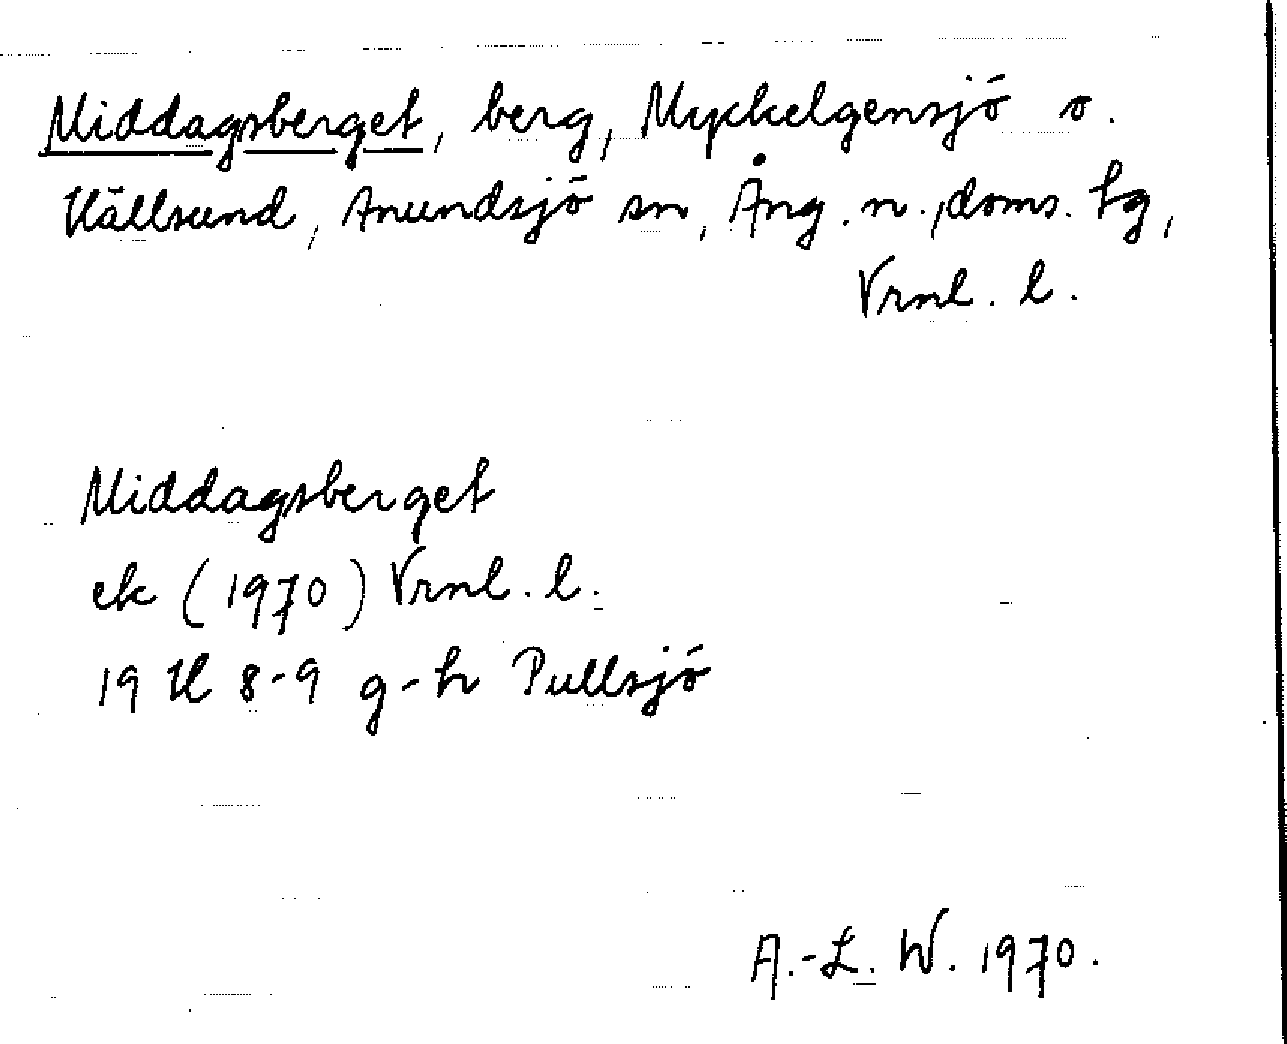 Middagsberget, berg, Myckelgensjö o.
Källsund, Anundsjö sn, Ång. n., doms. tg,
Vrnl. l.
Middagsberget
ek (1970) Vrnl. l.
19 H 8-9 g-h Pullsjö
A.-L. W. 1970.